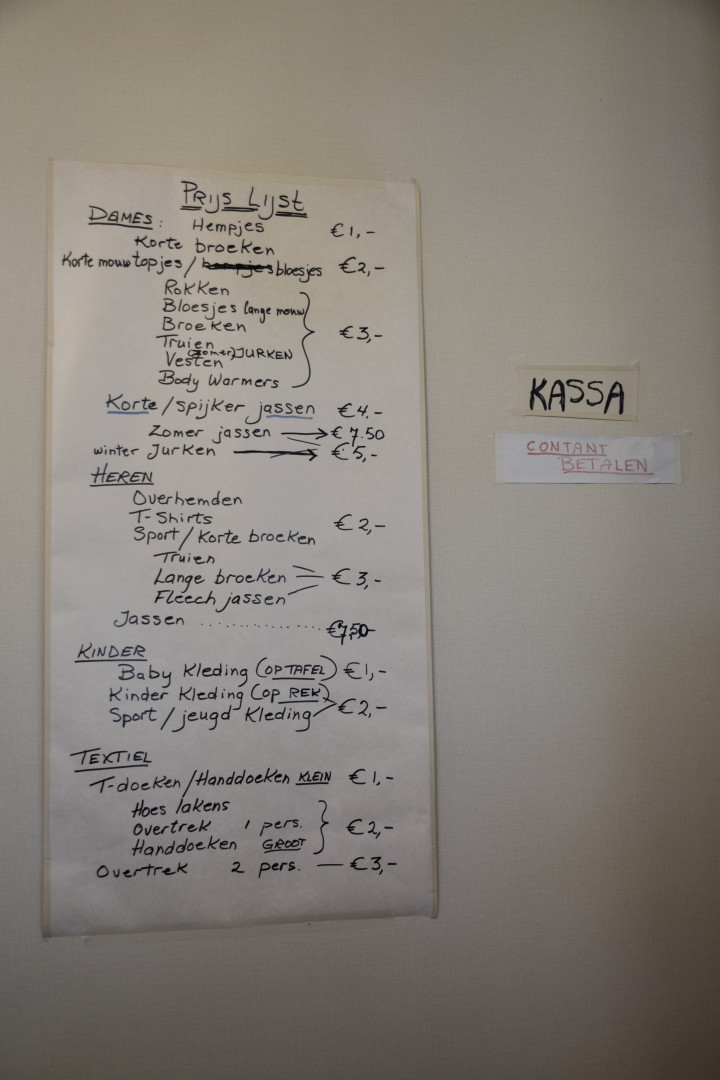 PRIJS LIJST
DAMES: Hempjes €1,-
Korte broeken
Korte mouw topjes / bloesjes €2,-
Rokken
Bloesjes lange mouw
Broeken €3,-
Truien
(zomer) JURKEN
Vesten
Body Warmers
Korte/spijker jassen €4.-
Zomer jassen €7.50
winter Jurken €5,-
HEREN
Overhemden
T-Shirts €2,-
Sport/Korte broeken
Truien
Lange broeken €3,-
Fleech jassen
Jassen .......... €7,50-
KINDER
Baby Kleding (OP TAFEL) €1,-
Kinder Kleding (OP REK)
Sport/jeugd Kleding €2,-
TEXTIEL
T-doeken/Handdoeken KLEIN €1,-
Hoes lakens
Overtrek 1 pers. €2,-
Handdoeken GROOT
Overtrek 2 pers. — €3,-
KASSA
CONTANT
BETALEN